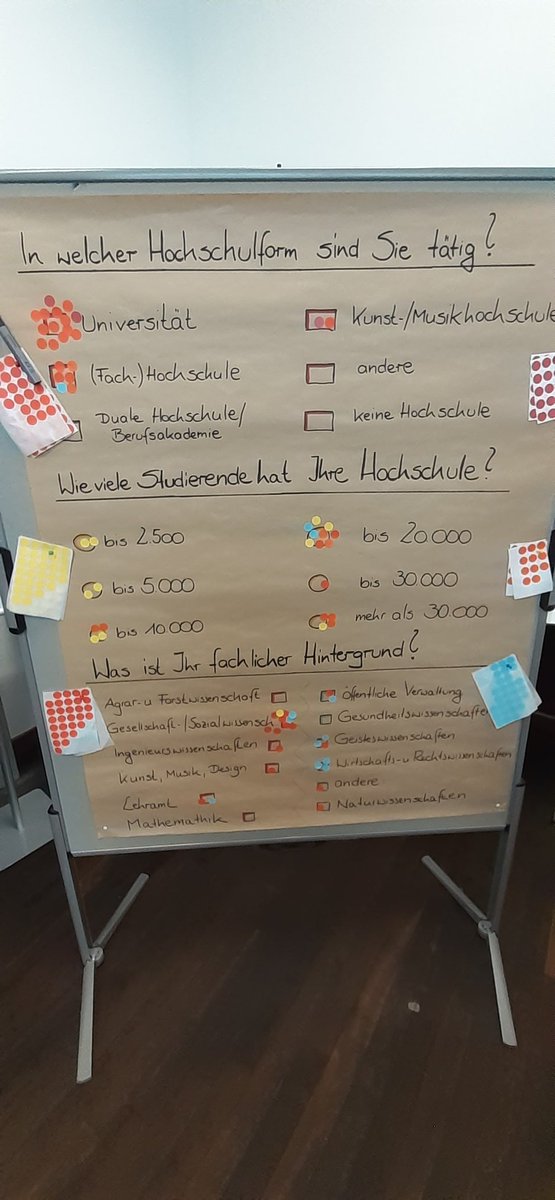 In welcher Hochschulform sind Sie tätig?
Universität
Kunst-/Musikhochschule
(Fach-)Hochschule
andere
Duale Hochschule/
Berufsakademie
keine Hochschule
Wie viele Studierende hat Ihre Hochschule?
bis 2.500
bis 20.000
bis 5.000
bis 30.000
bis 10.000
mehr als 30.000
Was ist Ihr fachlicher Hintergrund?
Agrar- u Forstwissenschaft
öffentliche Verwaltung
Gesellschaft-/Sozialwissensch
Gesundheitswissenschaften
Ingenieurswissenschaften
Geisteswissenschaften
Kunst, Musik, Design
Wirtschafts- u Rechtswissenschaften
andere
Lehramt
Naturwissenschaften
Mathemathik